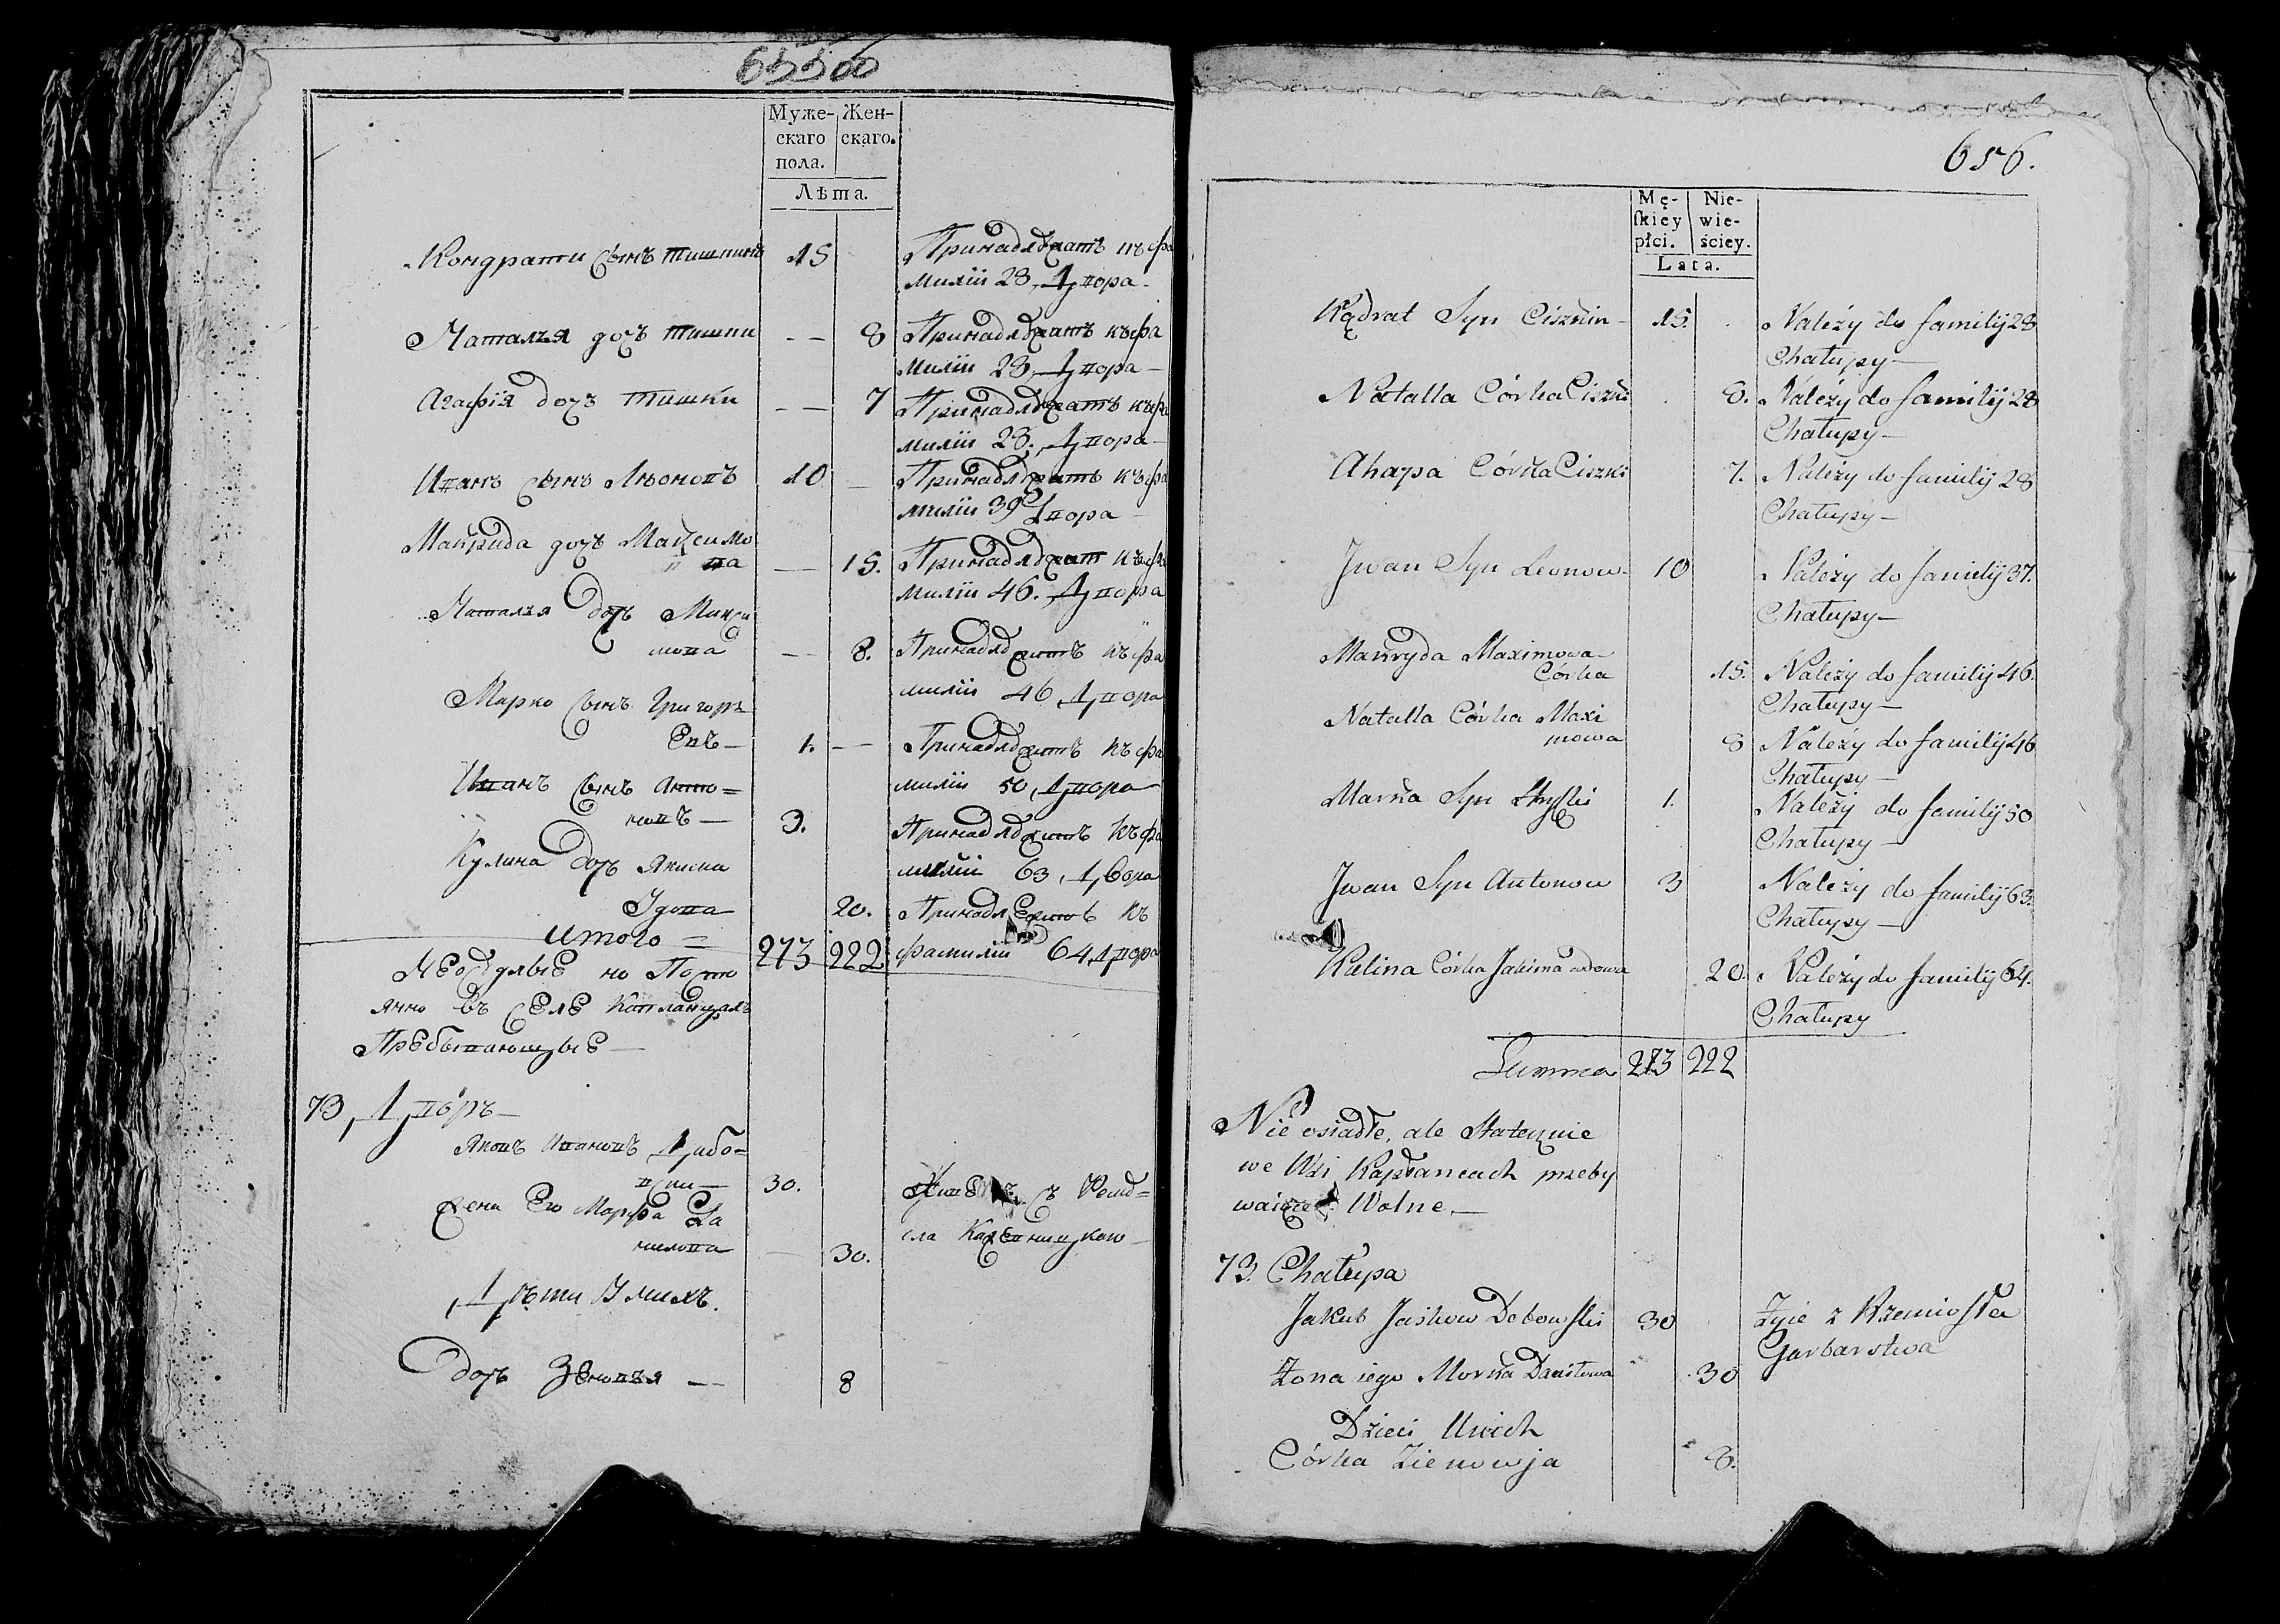 65500
Муже-
скаго
пола.
Жен-
скаго.
Лѣта.
Кондрати сынъ тишкинъ 15 Принадлежатъ къ фа
милїи 28, двора -
Наталья дочъ тишки - - 8 Принадлежатъ къ фа
милїи 28, двора -
Агафїя дочъ Тишки - - 7 Принадлежатъ къ фа
милїи 28, двора -
Иванъ сынъ Лѣоновъ 10 - Принадлежатъ къ фа
милїи 39 двора -
Маѵрида дочъ Максимо
ва - 15. Принадлежат къ фа
милїи 46. двора
Наталья дочъ Макси
мова - - 8. Принадлежитъ къ фа
милїи 46, двора
Марко сынъ Григорь
евъ - 1. - - Принадлежитъ къ фа
милїи 50, двора
Иванъ сынъ Анто=
новъ - 3. Принадлежитъ къ фа
милїи 63, двора
Кулина дочъ Якима
Удова 20. Принадлежитъ къ
Итого = 273 222 фамилїи 64, двора
Неоседлые но Посто
янно въ селе Капланцахъ
Пребывающые -
73, дворъ -
Яковъ Ивановъ Дабо=
вски - 30. Живетъ съ Ремё=
сла Кожевницкаго -
Жена Его Марфа Да
нилова - 30.
Дѣти У нихъ.
дочъ Зеновья - 8
656.
Mę-
skiey
płci.
Nie-
wie-
ściey.
Lata.
Kądrat Syn Ciszkin - 15. Należy do familij 28
Chałupy -
Natalla Córka Ciszki 8. Należy do familij 28
Chałupy -
Ahapa Córka Ciszki 7. Należy do familij 28
Chałupy -
Jwan Syn Leonow - 10 Należy do familij 37.
Chałupy -
Mawryda Maximowa -
Córka 15. Należy do familij 46.
Chałupy -
Natalla Córka Maxi
mowa 8 Należy do familij 46
Chałupy -
Marka Syn Hryszki 1. Należy do familij 50
Chałupy -
Jwan Syn Antonow 3 Należy do familij 63.
Chałupy -
Kulina Córka Jakima wdowa 20. Należy do familij 64.
Chałupy
Summa 273 222
Nie osiadłe, ale statecznie
we Wsi Kapłancach przeby
waiące. Wolne. -
73. Chałupa
Jakub Jaśkow Dobowski 30 Żyie z Rzemiosła
Garbarstwa
Żona iego Morka Daniłowa 30
Dzieci Unich
Córka Zienowja 8.